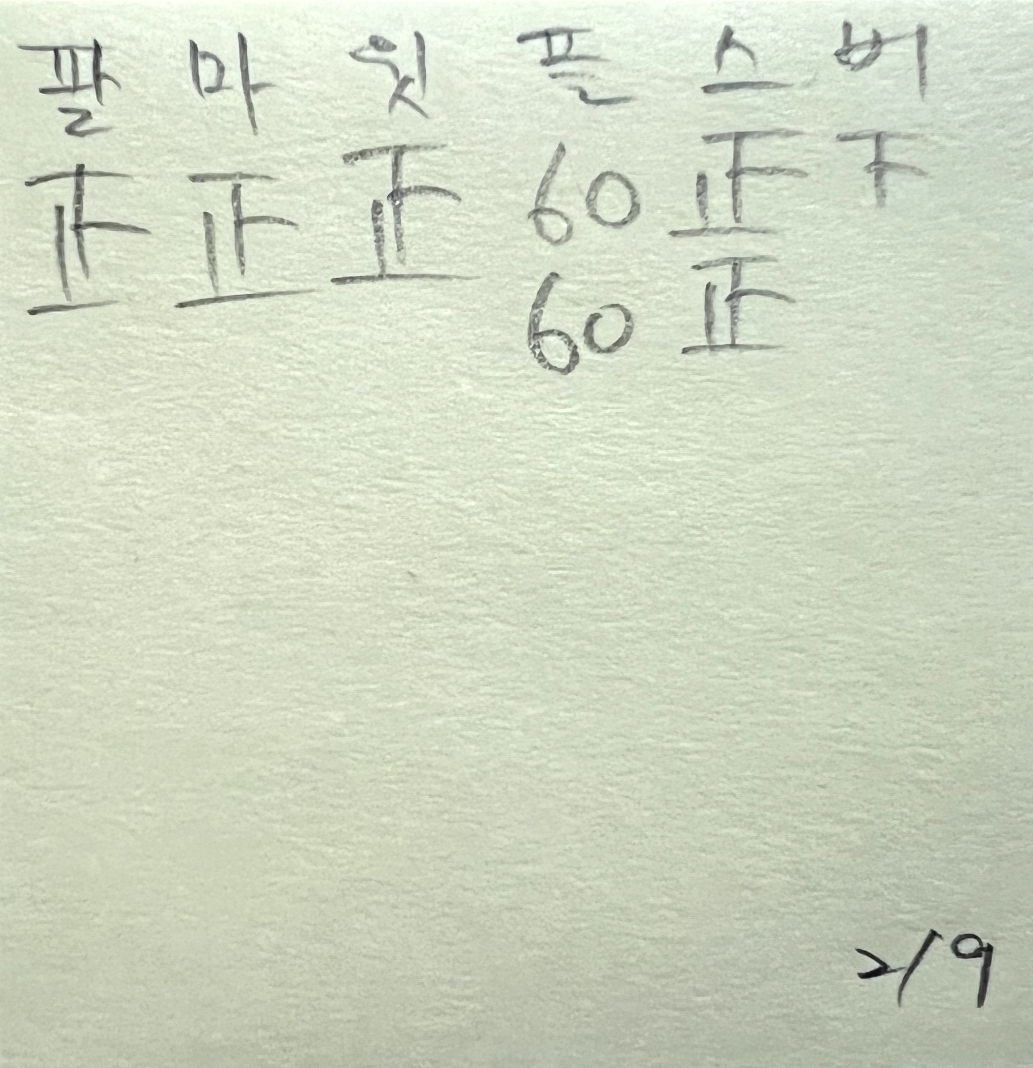 팔 마 윗 플 스 버
正 正 正 60 正 下
60 正
2/9